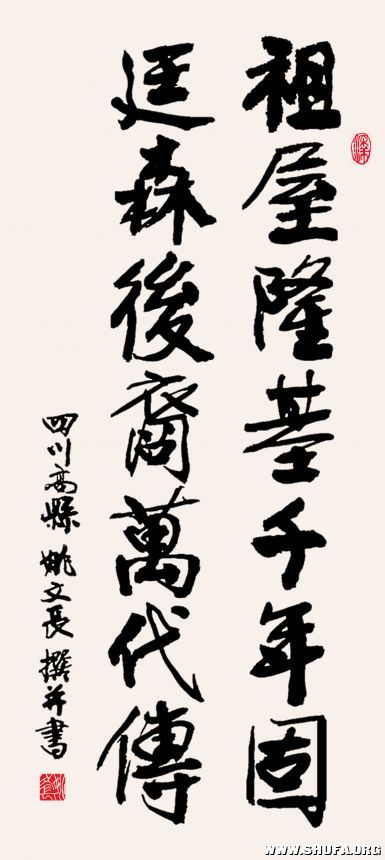 祖屋隆基千年固
廷森後裔萬代傳
四川高縣姚文長撰并書
WWW.SHUFA.ORG